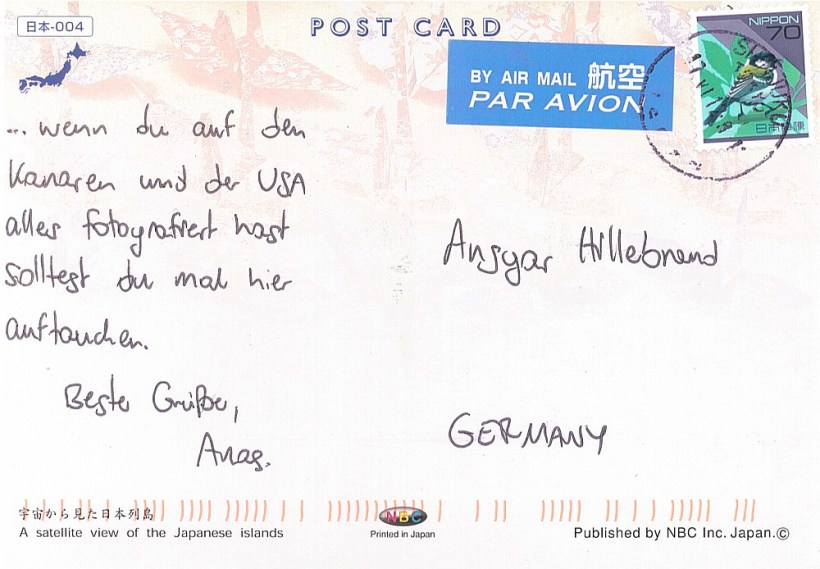 日本-004
POST CARD
BY AIR MAIL 航空
PAR AVION
NIPPON
70
日本郵便
... wenn du auf den
Kanaren und der USA
alles fotografiert hast
solltest du mal hier
auftauchen.
Beste Grüße,
Ansgar Hillebrand
GERMANY
宇宙から見た日本列島
A satellite view of the Japanese islands
NBC
Printed in Japan
Published by NBC Inc. Japan.©